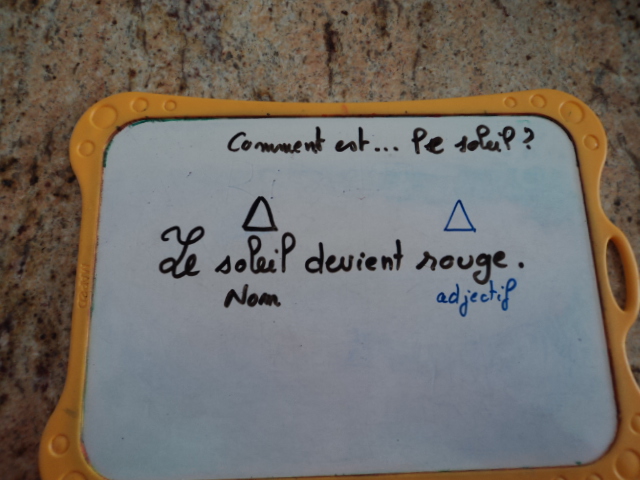 Comment est... le soleil ?
Le soleil devient rouge.
Nom adjectif